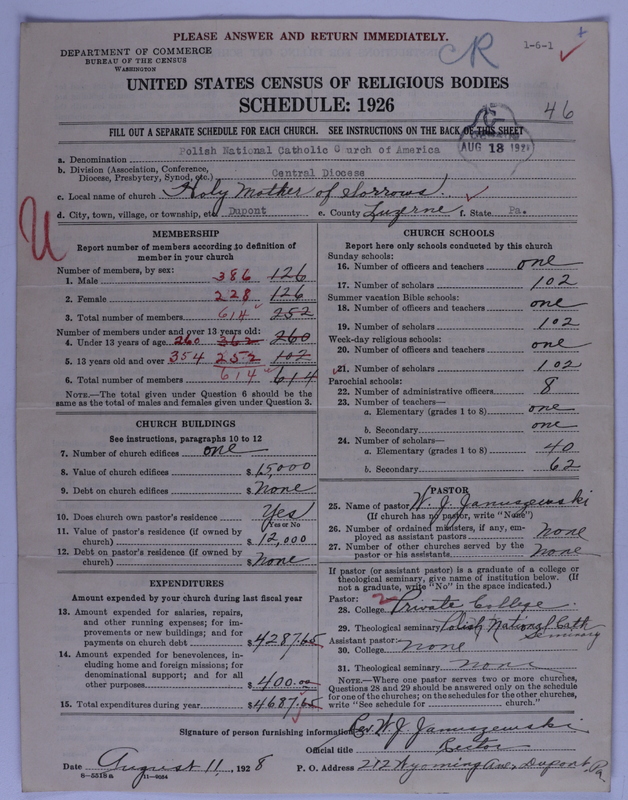 PLEASE ANSWER AND RETURN IMMEDIATELY.
CR
1-6-1
DEPARTMENT OF COMMERCE
BUREAU OF THE CENSUS
WASHINGTON
UNITED STATES CENSUS OF RELIGIOUS BODIES
SCHEDULE: 1926
46
FILL OUT A SEPARATE SCHEDULE FOR EACH CHURCH. SEE INSTRUCTIONS ON THE BACK OF THIS SHEET
AUG 13 1928
a. Denomination Polish National Catholic Church of America
b. Division (Association, Conference, Diocese, Presbytery, Synod, etc.) Central Diocese
c. Local name of church Holy Mother of Sorrows
d. City, town, village, or township, etc. Dupont e. County Luzerne f. State Pa.
MEMBERSHIP
Report number of members according to definition of
member in your church
Number of members, by sex:
1. Male 386 126
2. Female 228 126
3. Total number of members 614 252
Number of members under and over 13 years old:
4. Under 13 years of age 260 362 260
5. 13 years old and over 354 252 102
6. Total number of members 614 614
NOTE.—The total given under Question 6 should be
same as the total of males and females given under Question 3.
CHURCH BUILDINGS
See instructions, paragraphs 10 to 12
7. Number of church edifices one
8. Value of church edifices $15,000
9. Debt on church edifices $None
10. Does church own pastor's residence Yes
Yes or No
11. Value of pastor's residence (if owned by
church) $12,000
12. Debt on pastor's residence (if owned by
church) $None
EXPENDITURES
Amount expended by your church during last fiscal year
13. Amount expended for salaries, repairs,
and other running expenses; for im-
provements or new buildings; and for
payments on church debt $4287.65
14. Amount expended for benevolences, in-
cluding home and foreign missions; for
denominational support; and for all
other purposes $400.00
15. Total expenditures during year $4687.65
CHURCH SCHOOLS
Report here only schools conducted by this church
Sunday schools:
16. Number of officers and teachers one
17. Number of scholars 102
Summer vacation Bible schools:
18. Number of officers and teachers one
19. Number of scholars 102
Week-day religious schools:
20. Number of officers and teachers one
21. Number of scholars 102
Parochial schools:
22. Number of administrative officers 8
23. Number of teachers—
a. Elementary (grades 1 to 8) one
b. Secondary one
24. Number of scholars—
a. Elementary (grades 1 to 8) 40
b. Secondary 62
PASTOR
25. Name of pastor W. J. Januszewski
(If church has no pastor, write "None")
26. Number of ordained ministers, if any, em-
ployed as assistant pastors none
27. Number of other churches served by the
pastor or his assistants none
If pastor (or assistant pastor) is a graduate of a college or
theological seminary, give name of institution below. (If
not a graduate, write "No" in the space indicated.)
Pastor:
28. College Private College
29. Theological seminary Polish National Cath
Seminary
Assistant pastor:
30. College none
31. Theological seminary none
NOTE.—Where one pastor serves two or more churches,
Questions 28 and 29 should be answered only on the schedule
for one of the churches; on the schedules for the other churches,
write "See schedule for church."
Signature of person furnishing information Rev. W. J. Januszewski
Official title Rector
Date August 11, 1928 P. O. Address 212 Wyoming Ave, Dupont, Pa
8-5518a 11-9034